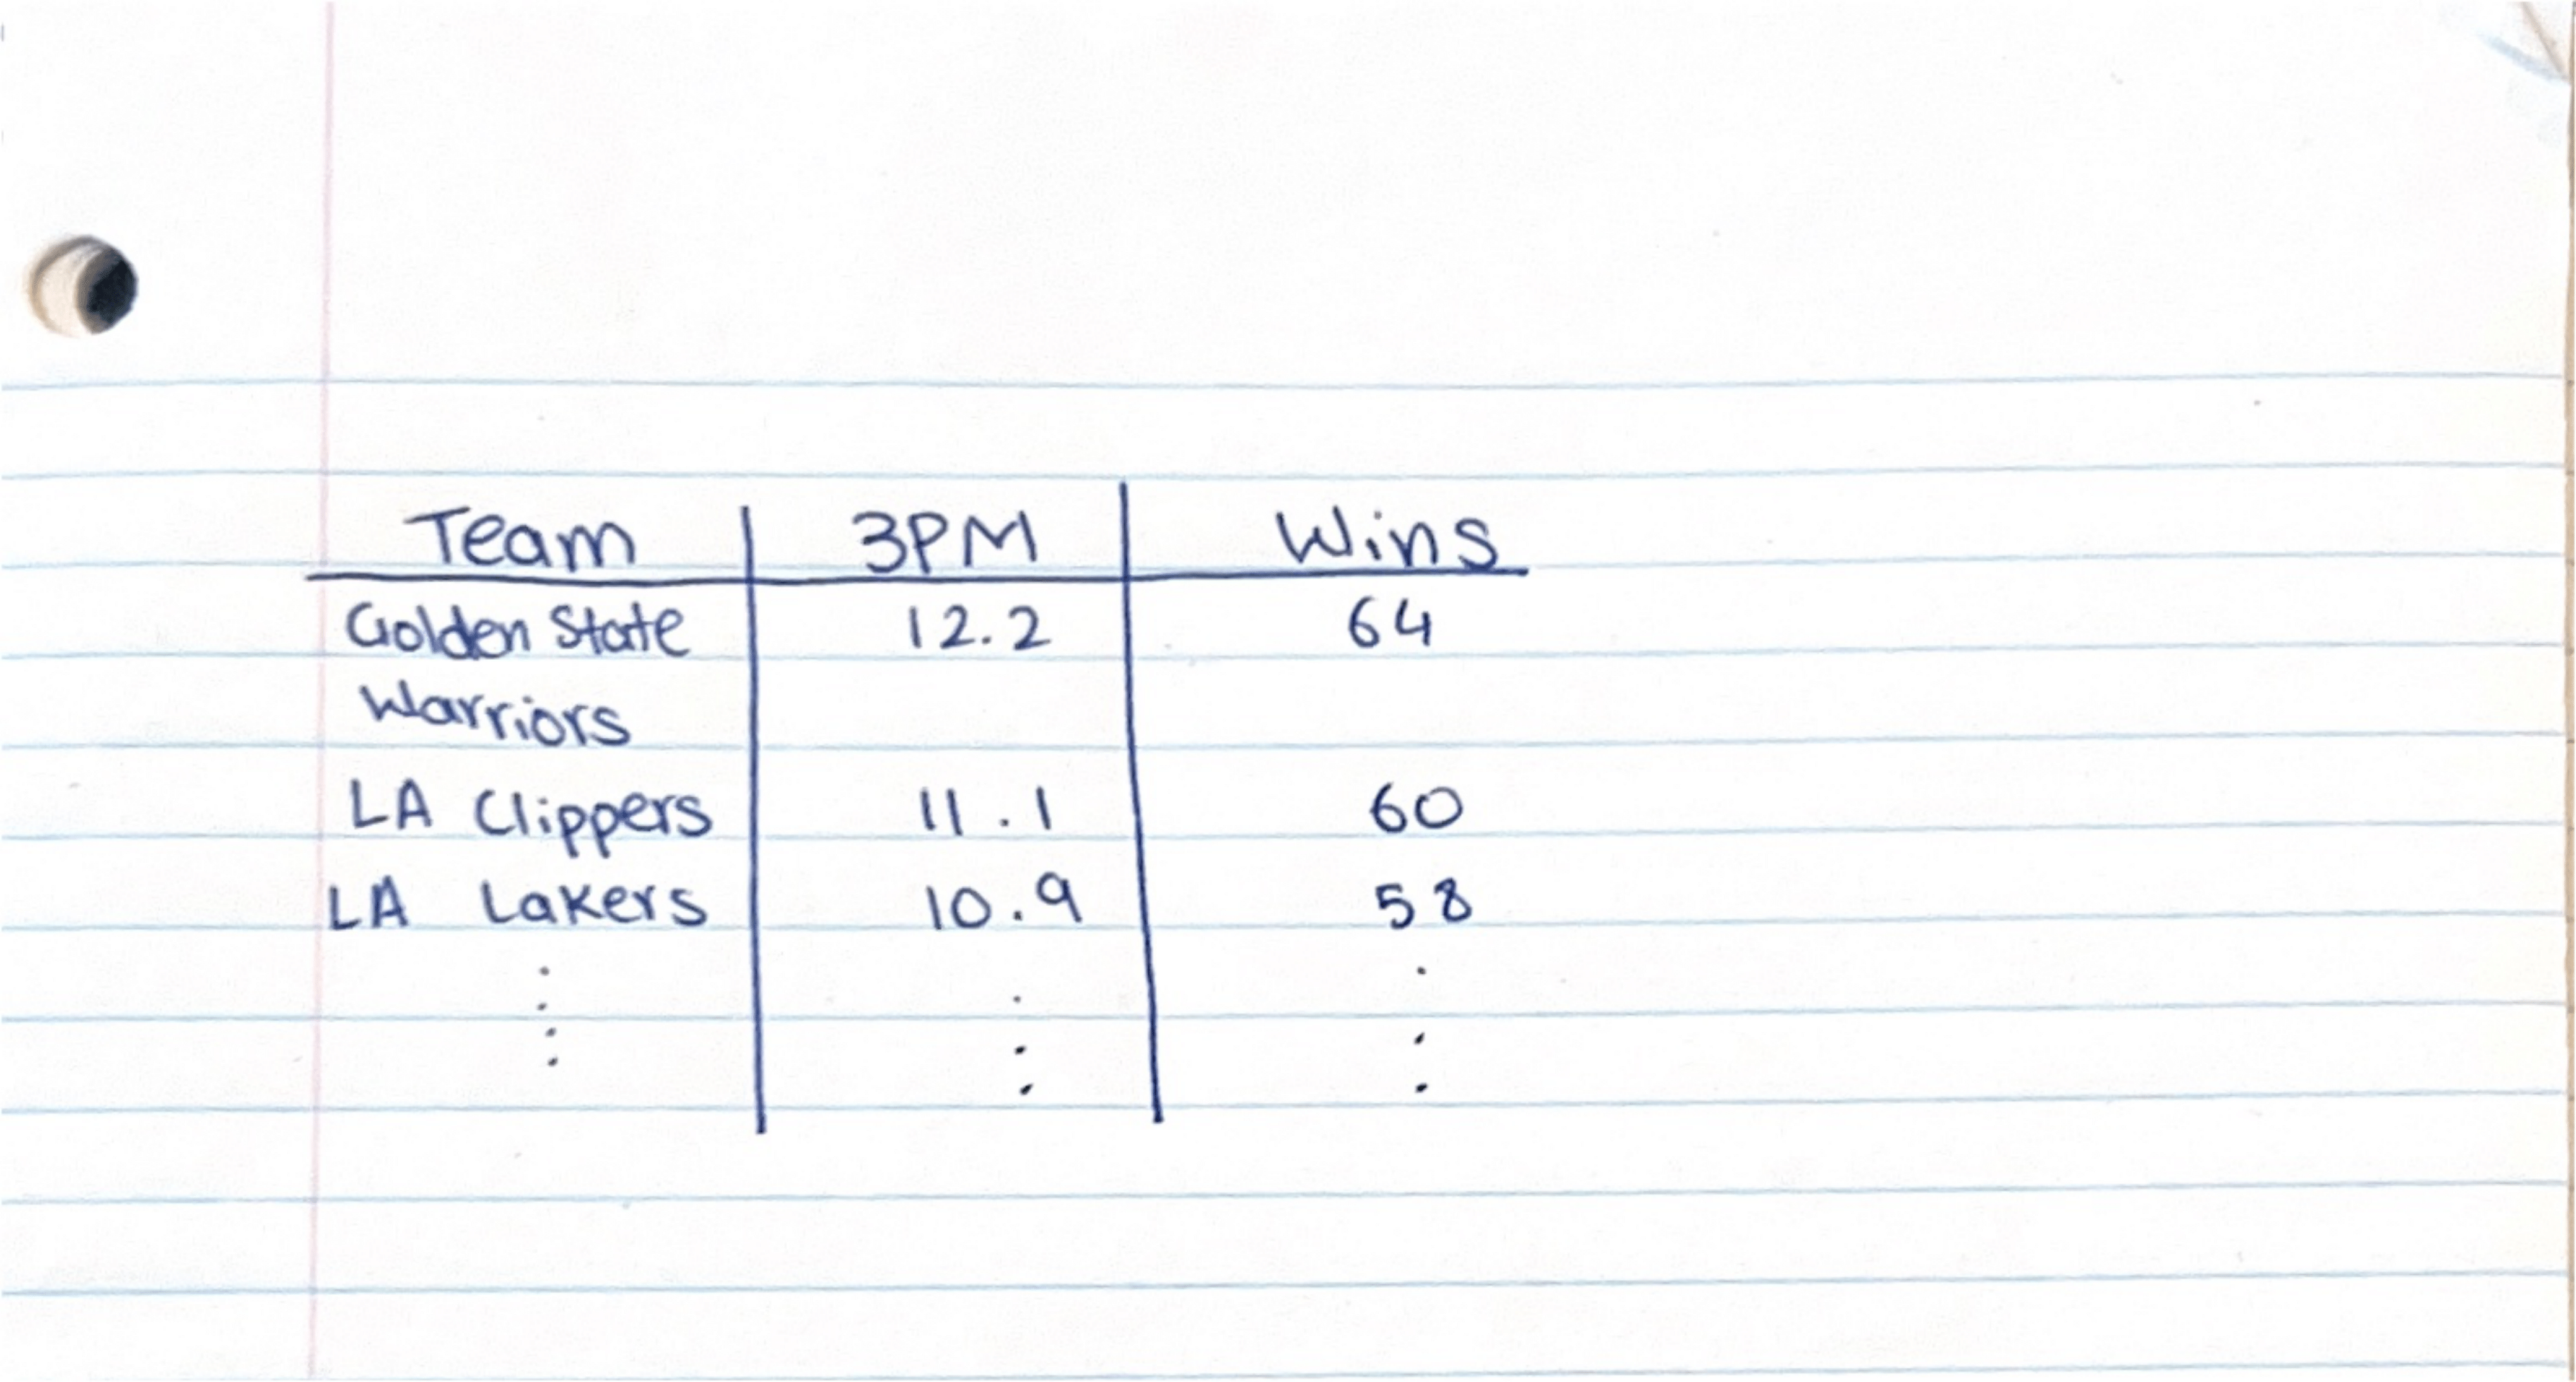 Team 3PM Wins
Golden State 12.2 64
Warriors
LA Clippers 11.1 60
LA Lakers 10.9 58